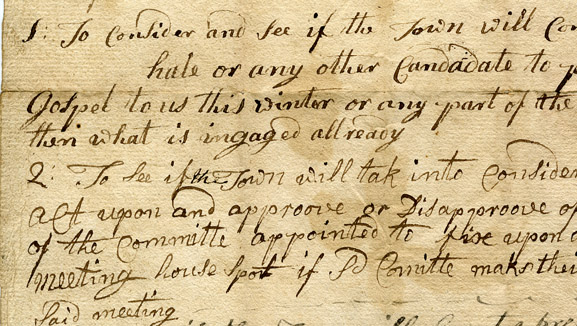 1: To Consider and See if the Town will Con
hale or any other Candadate to p
Gospel to us this winter or any part of the
then what is ingaged allready
2: To See if the Town will tak into Consider
act upon and approove or Disapproove of
of the Committe appointed to fix upon a
meeting house Spot if Sd Comitte maks thei
Said meeting
the